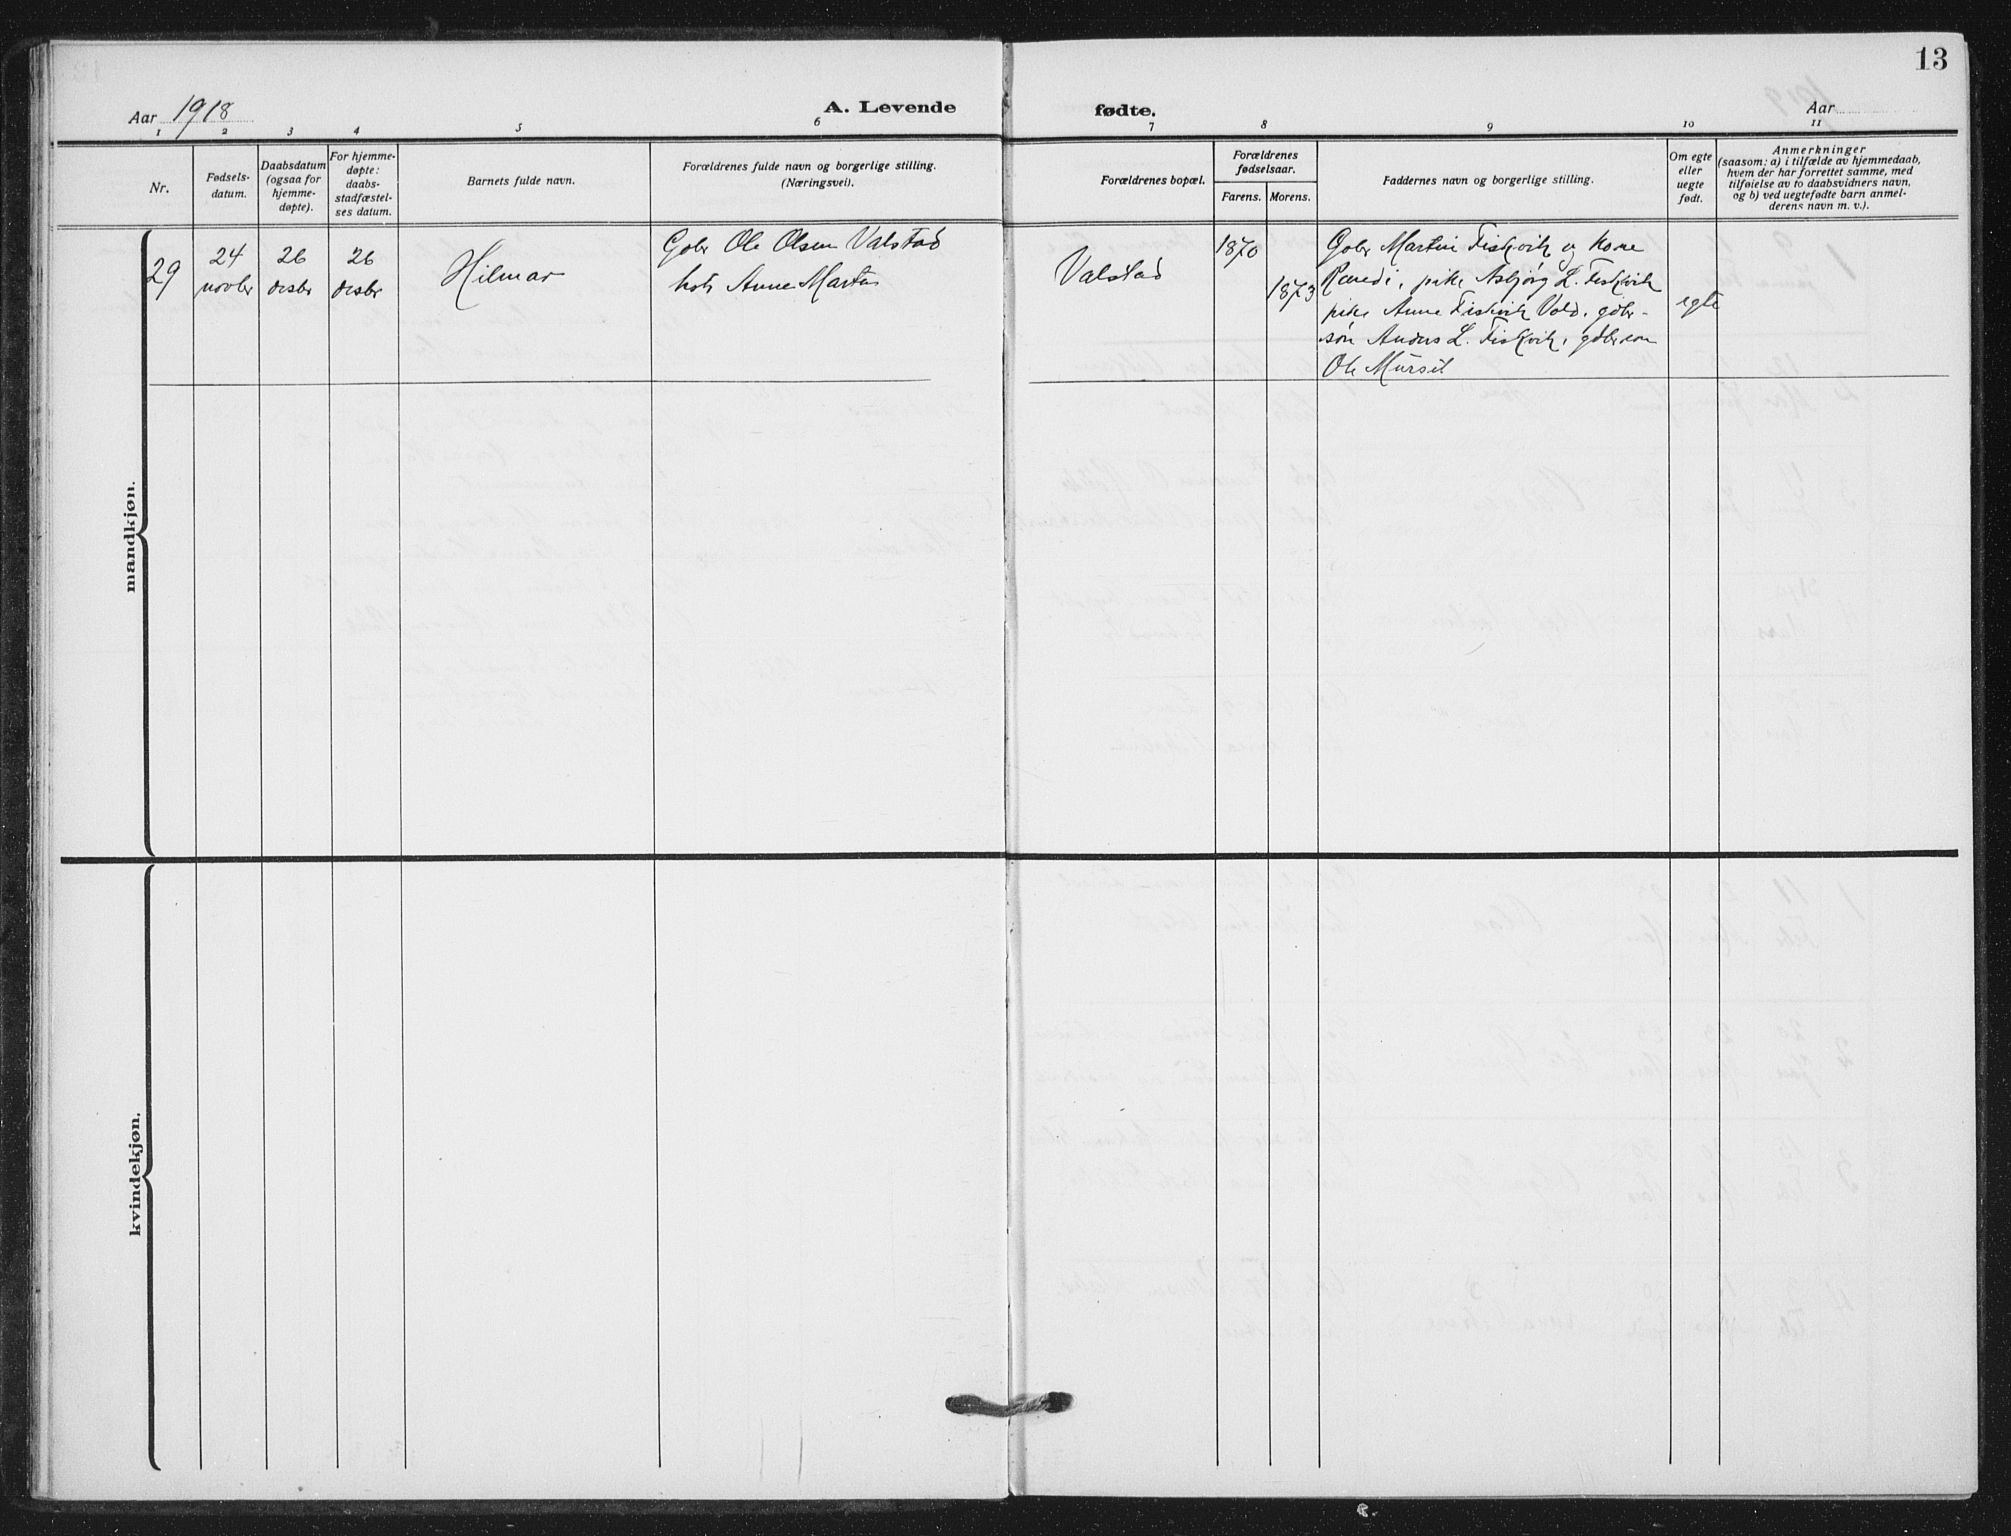 13
Aar 1918
A. Levende
fødte.
Aar
1 2 3 4 5 6 7 8 9 10 11
Nr.
Fødsels-
datum.
Daabsdatum
(ogsaa for
hjemme-
døpte).
For hjemme-
døpte:
daabs-
stadfæstel-
ses datum.
Barnets fulde navn.
Forældrenes fulde navn og borgerlige stilling.
(Næringsvei).
Forældrenes bopæl.
Forældrenes
fødselsaar.
Farens. Morens.
Faddernes navn og borgerlige stilling.
Om egte
eller
uegte
født.
Anmerkninger
(saasom: a) i tilfælde av hjemmedaab,
hvem der har forrettet samme, med
tilføielse av to daabsvidners navn,
og b) ved uegtefødte barn anmel-
derens navn m. v.).
mandkjøn.
29
24
novbr
26
desbr
26
desbr
Hilmar
Gbr Ole Olsen Valstad
Anne Marta
Valstad
1870
1873
Gbr Martin Fiskvik og kone
pike Asbjørg L. Fiskvik
pike Anne Fiskvik Vold, gbr-
søn Anders L. Fiskvik, gbrsøn
Ole
egte
kvindekjøn.